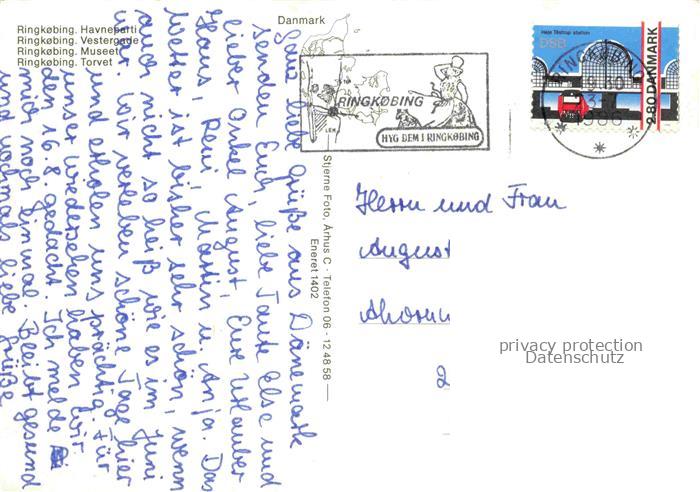 Ringkøbing. Havneparti
Ringkøbing. Vestergade
Ringkøbing. Museet
Ringkøbing. Torvet
Danmark
RINGKØBING
HYG DEM I RINGKØBING
Høje Tåstrup station
DSB
2.80 DANMARK
RINGKØBING
1986
Stjerne Foto, Århus C - Telefon 06 - 12 48 58
Eneret 1402
Ganz liebe Grüße aus Dänemark
senden Euch, liebe Tante Else und
lieber Onkel August, Eure Urlauber
Klaus, Martin u. Anja. Das
Wetter ist bisher sehr schön, wenn
auch nicht so heiß wie es im Juni
war. Wir verleben schöne Tage hier
und erholen uns prächtig. Für
unser Wiedersehen haben wir
den 16.8. gedacht. Ich melde
mich noch einmal. Bleibt gesund
und nochmals liebe Grüße
Herrn und Frau
August
Ahorn
2
privacy protection
Datenschutz